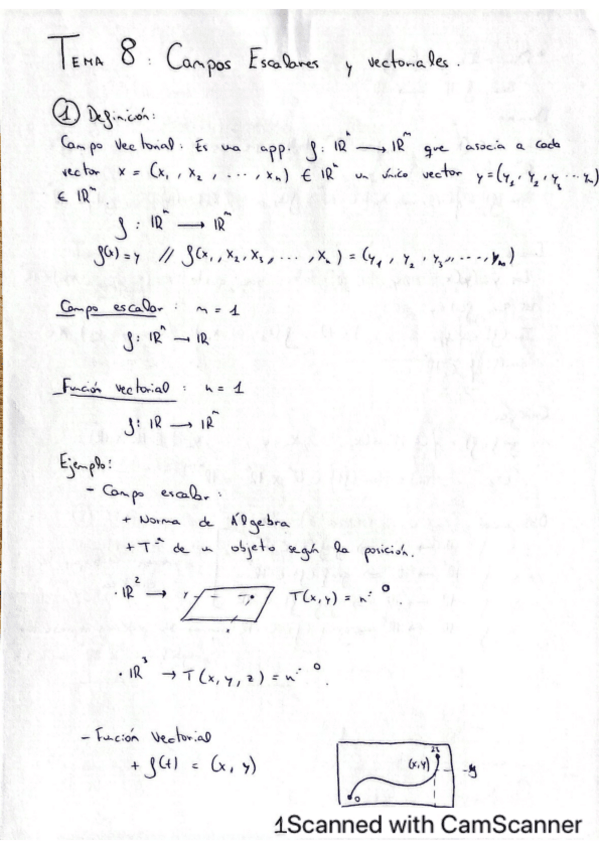 TEMA 8: Campos Escalares y vectoriales.
① Definición:
Campo vectorial: Es una app. f: ℝⁿ → ℝᵐ que asocia a cada
vector x = (x₁, x₂, ..., xₙ) ∈ ℝⁿ un único vector y = (y₁, y₂, y₃ ... yₘ)
∈ ℝᵐ.
f: ℝⁿ → ℝᵐ
f(x) = y // f(x₁, x₂, x₃, ..., xₙ) = (y₁, y₂, y₃, ..., yₘ)
Campo escalar: m = 1
f: ℝⁿ → ℝ
Función vectorial: n = 1
f: ℝ → ℝᵐ
Ejemplo:
- Campo escalar:
+ Norma de Álgebra
+ Tᵃ de un objeto según la posición.
· ℝ² → y T(x, y) = nº
· ℝ³ → T(x, y, z) = nº
- Función Vectorial
+ f(t) = (x, y)
(x, y)
- y
0
1Scanned with CamScanner